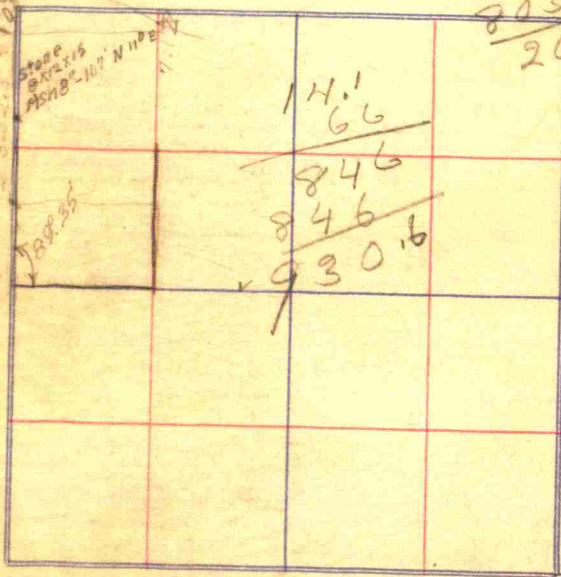 Stone
8x12x15
Ash 8"-11.7' N 11° E
14.1
66
846
846
930.6
88.35